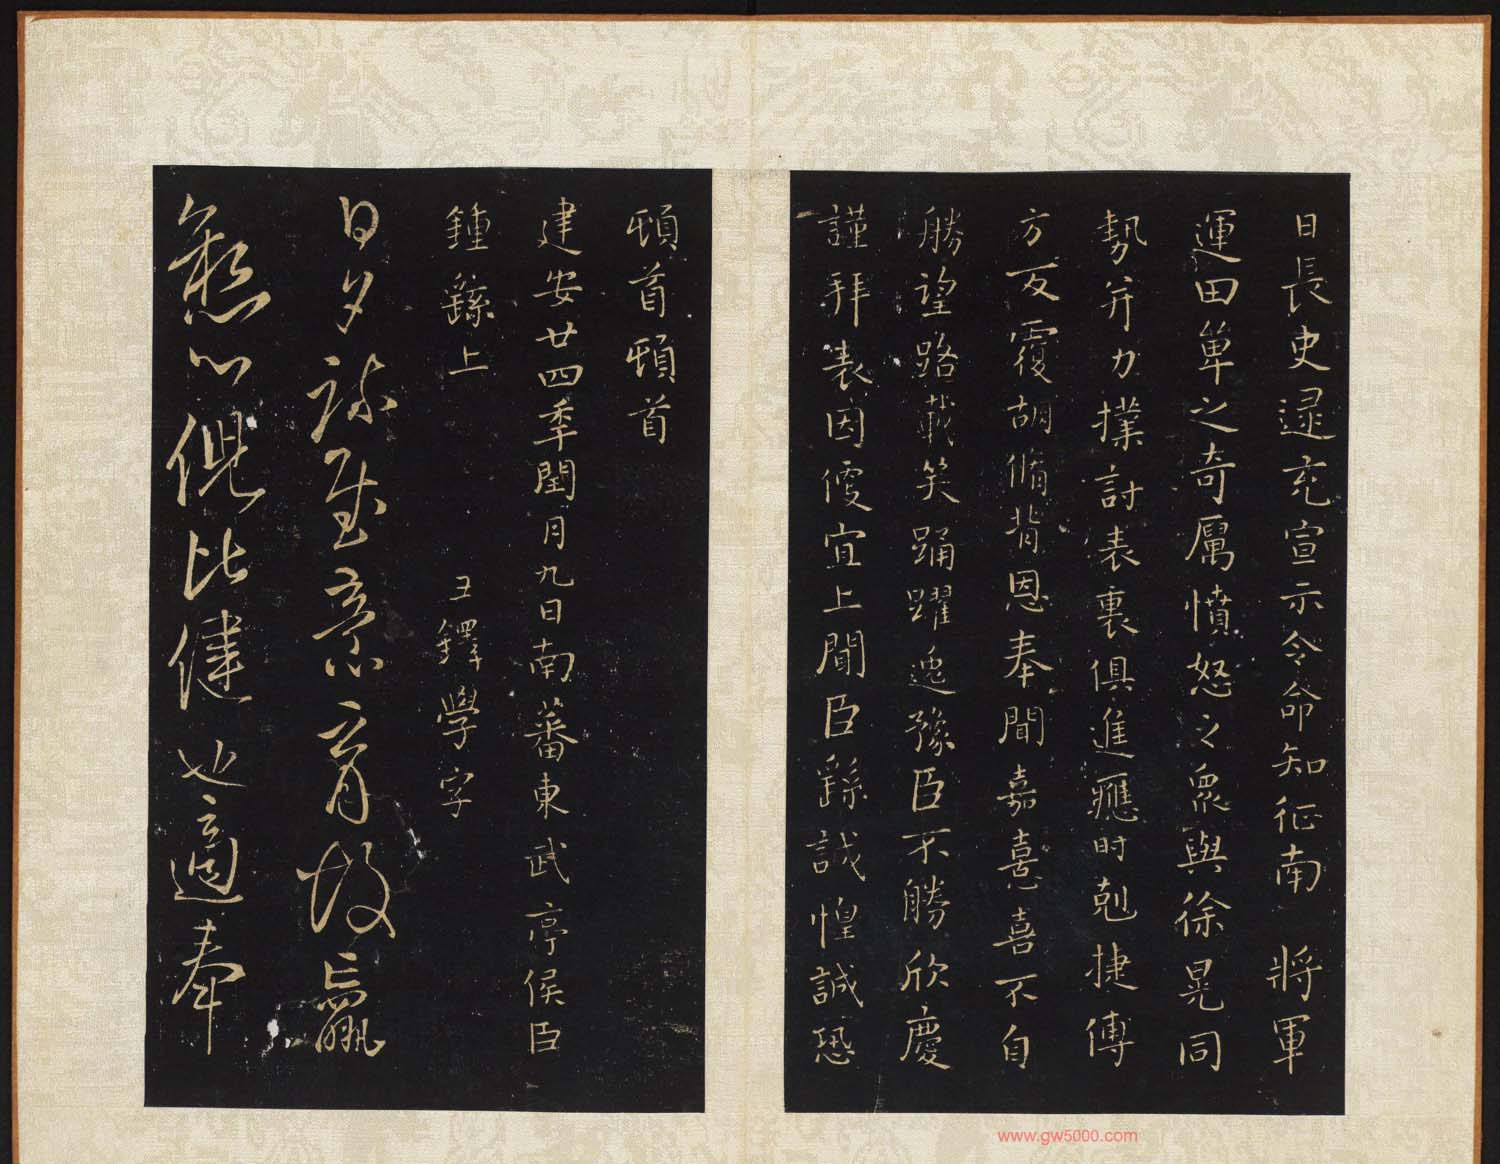 日長史逯充宣示令命知征南將軍
運田單之奇厲憤怒之眾與徐晃同
勢并力撲討表裏俱進應時剋捷傳
方反覆胡脩背恩奉聞嘉憙喜不自
勝望路載笑踊躍逸豫臣不勝欣慶
謹拜表因便宜上聞臣繇誠惶誠恐
頓首頓首
建安廿四年閏月九日南蕃東武亭侯臣
鍾繇上
王鐸學字
日夕疎
育故羸
心
比健也適奉
www.gw5000.com